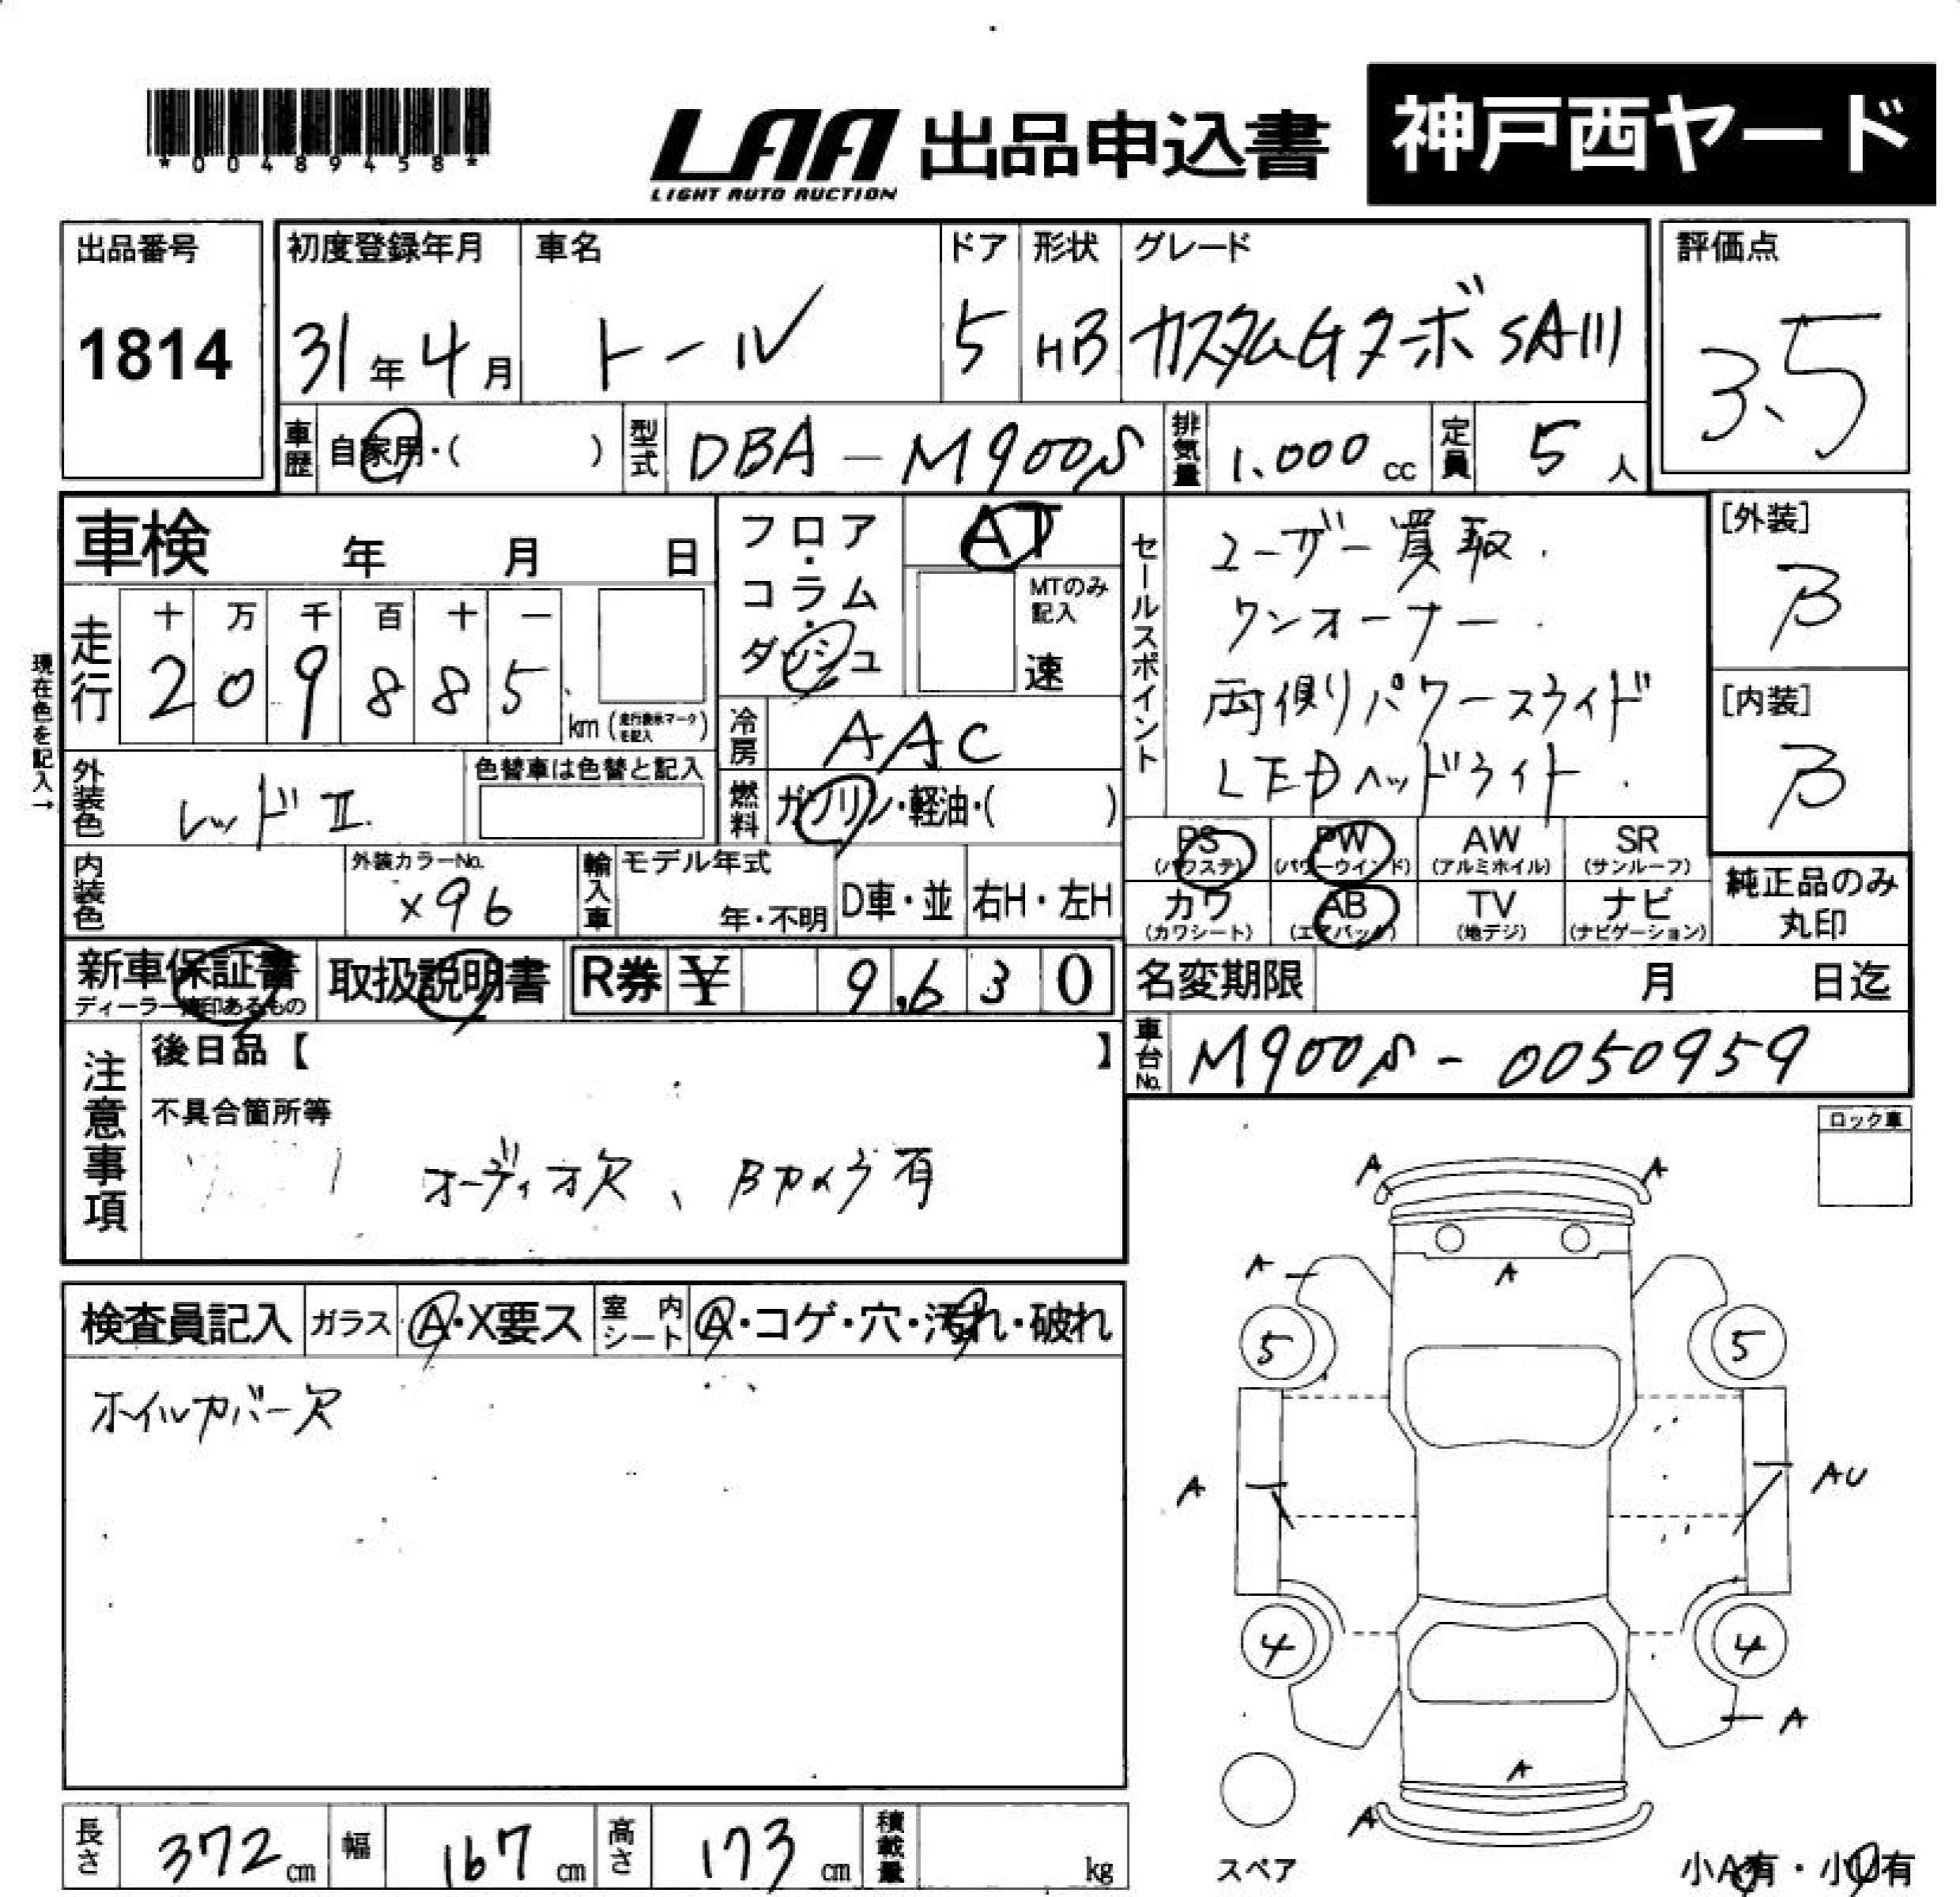 *00489458*
LAA 出品申込書 神戸西ヤード
LIGHT AUTO AUCTION
出品番号 初度登録年月 車名 ドア 形状 グレード 評価点
1814 31年4月 トール 5 HB カスタムGターボSAIII 3.5
車歴 自家用・( ) 型式 DBA-M900S 排気量 1.000cc 定員 5人
車検 年 月 日
フロア・コラム・ダッシュ AT
MTのみ記入
速
セールスポイント
ユーザー買取.
ワンオーナー.
両側パワースライド
LEDヘッドライト.
[外装]
B
[内装]
B
現在色を記入→
走行 十 万 千 百 十 一
2 0 9 8 8 5
km(走行表示マークを記入)
冷房 AAC
外装色 レッドII 色替車は色替と記入
燃料 ガソリン・軽油・( )
PS PW AW SR
(パワステ) (パワーウインド) (アルミホイル) (サンルーフ)
カワ AB TV ナビ
(カワシート) (エアバック) (地デジ) (ナビゲーション)
純正品のみ
丸印
内装色 外装カラーNo. X96
輸入車 モデル年式 年・不明 D車・並 右H・左H
新車保証書 取扱説明書 R券 ¥ 9,630
名変期限 月 日迄
車台No. M900S-0050959
注意事項
後日品【 】
不具合箇所等
オーディオ欠、Bカメラ有
ロック車
検査員記入 ガラス A・X要ス 室内シート A・コゲ・穴・汚れ・破れ
ホイルカバー欠
A A
A A
5 5
A AU
4 4
A
A
A
スペア
小A有・小U有
長さ 372cm 幅 167cm 高さ 173cm 積載量 kg